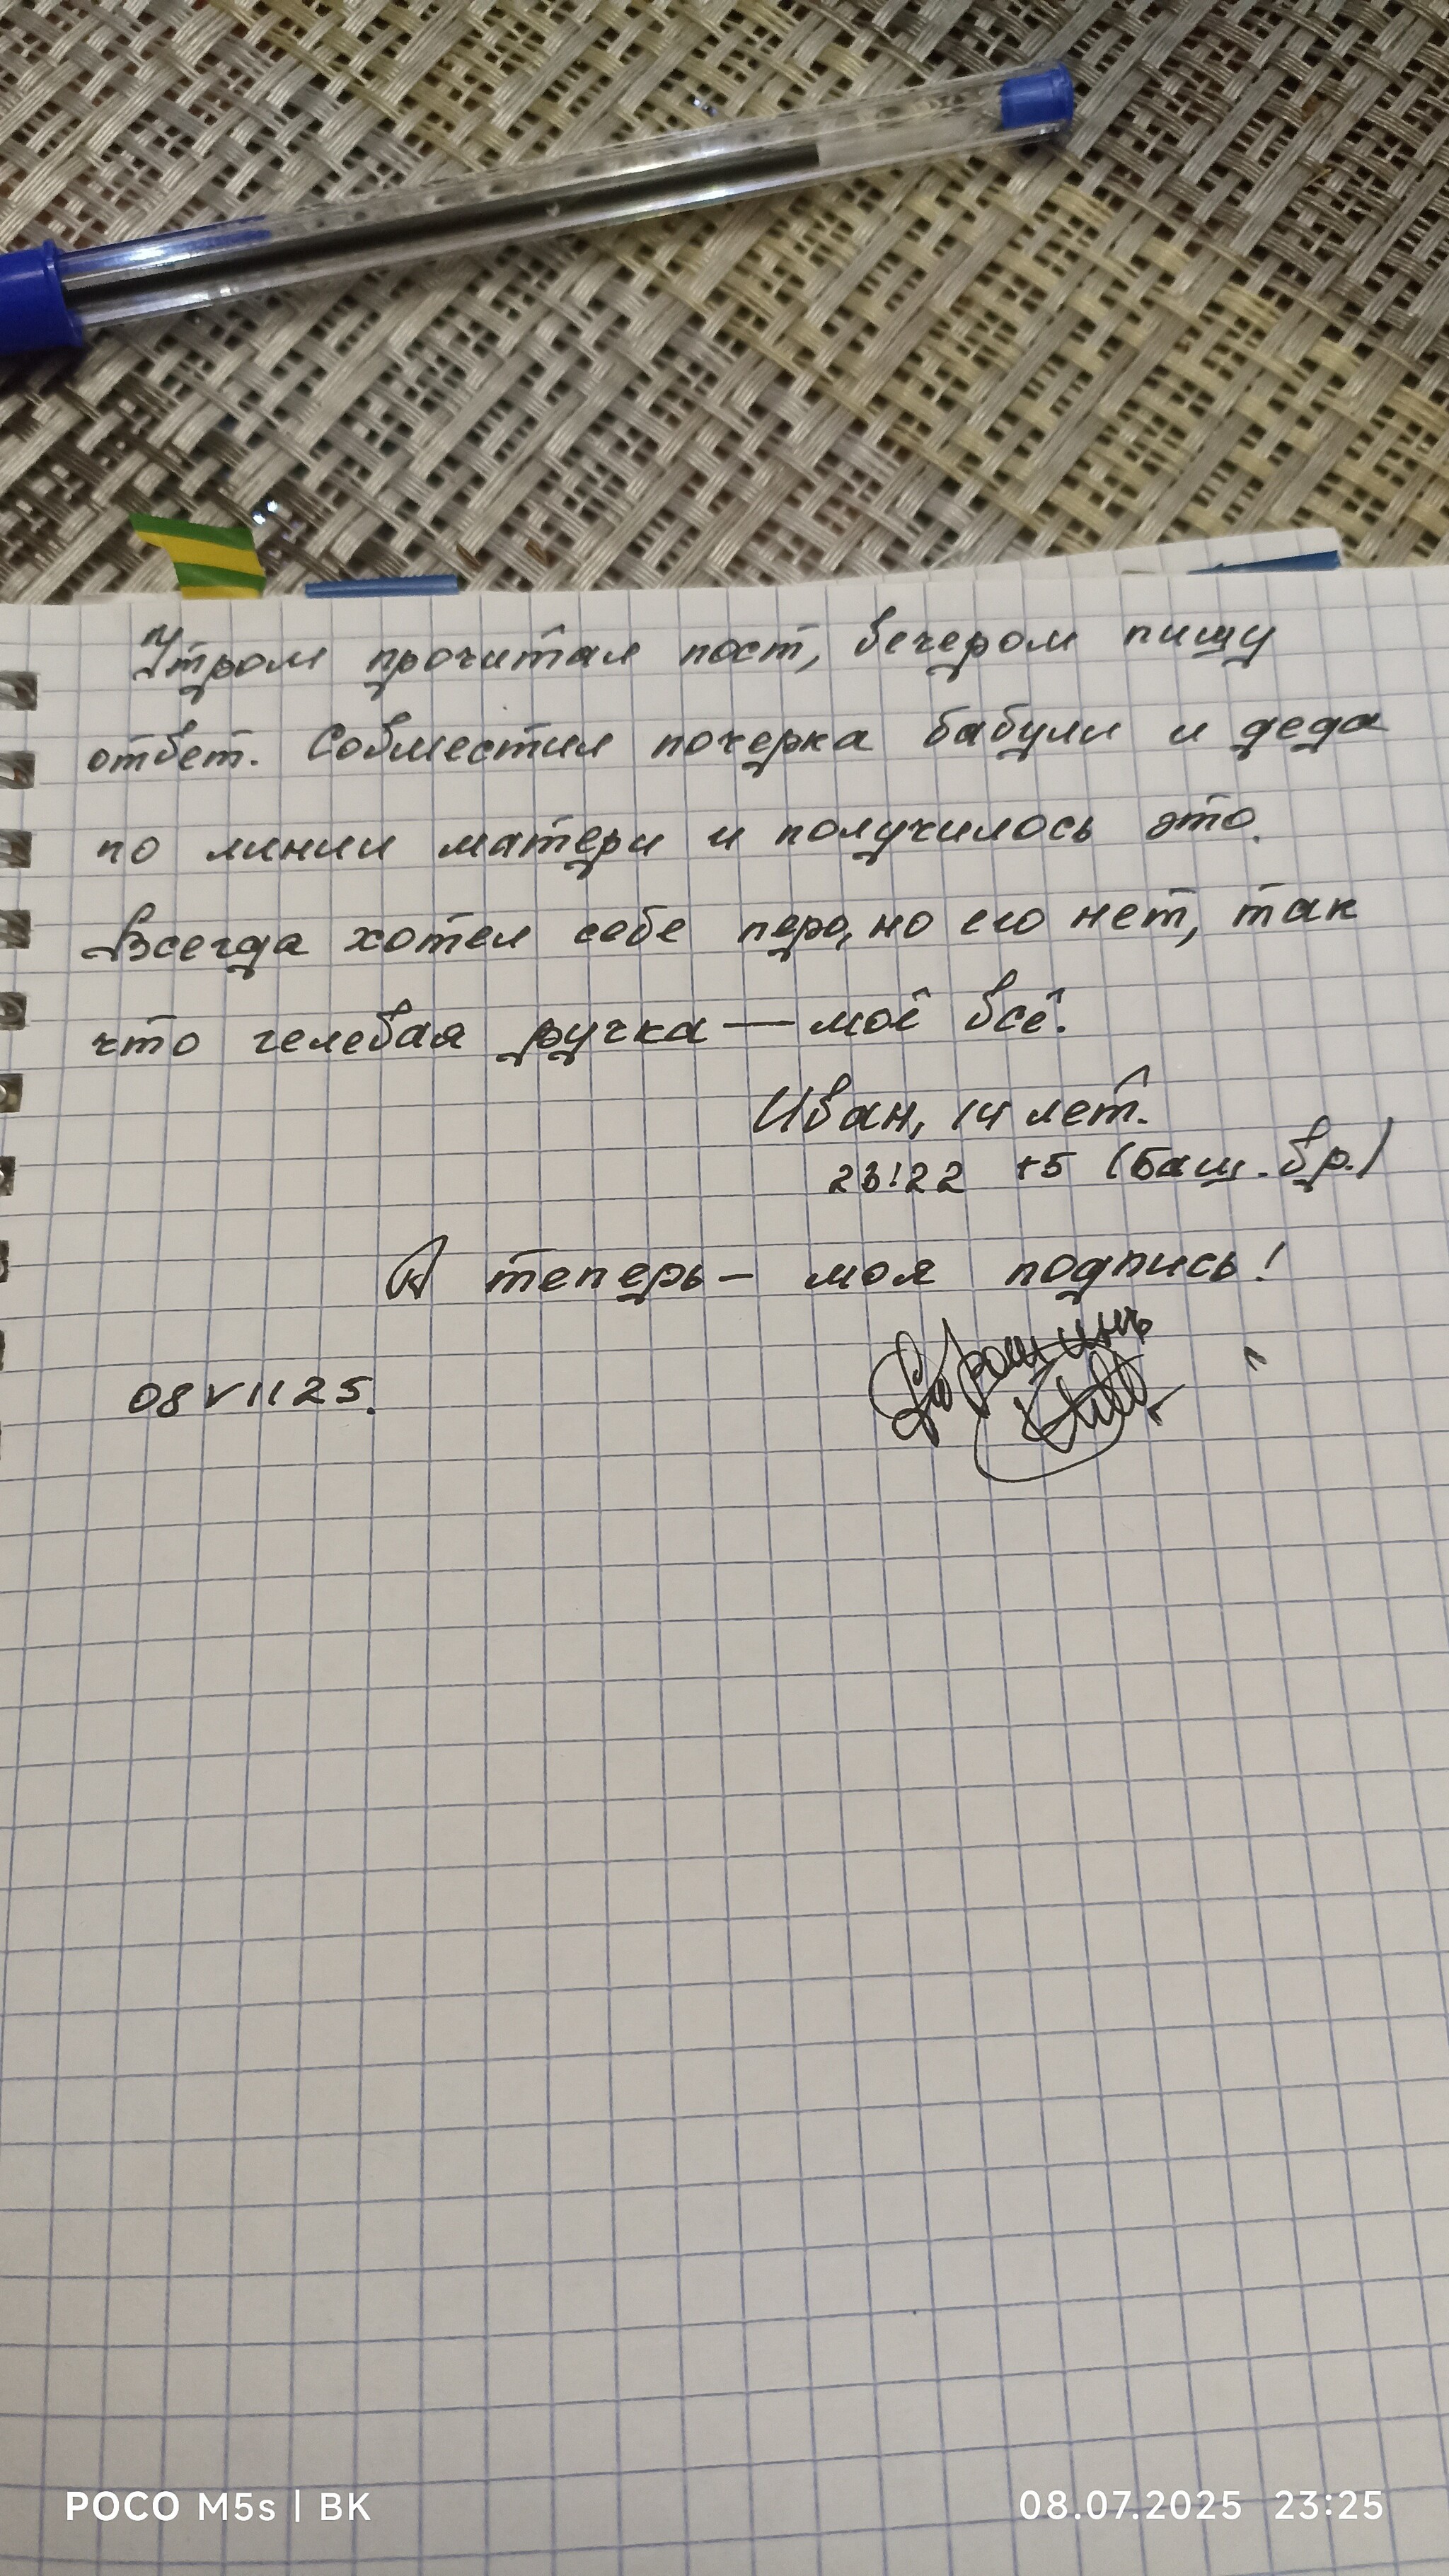 Утром прочитал пост, вечером пишу
ответ. Совместил почерка бабули и деда
по линии матери и получилось это.
Всегда хотел себе перо, но его нет, так
что гелевая ручка — моё всё.
Иван, 14 лет.
23:22 +5 (Баш. вр.)
А теперь – моя подпись!
08 VII 25.
POCO M5s | BK
08.07.2025 23:25